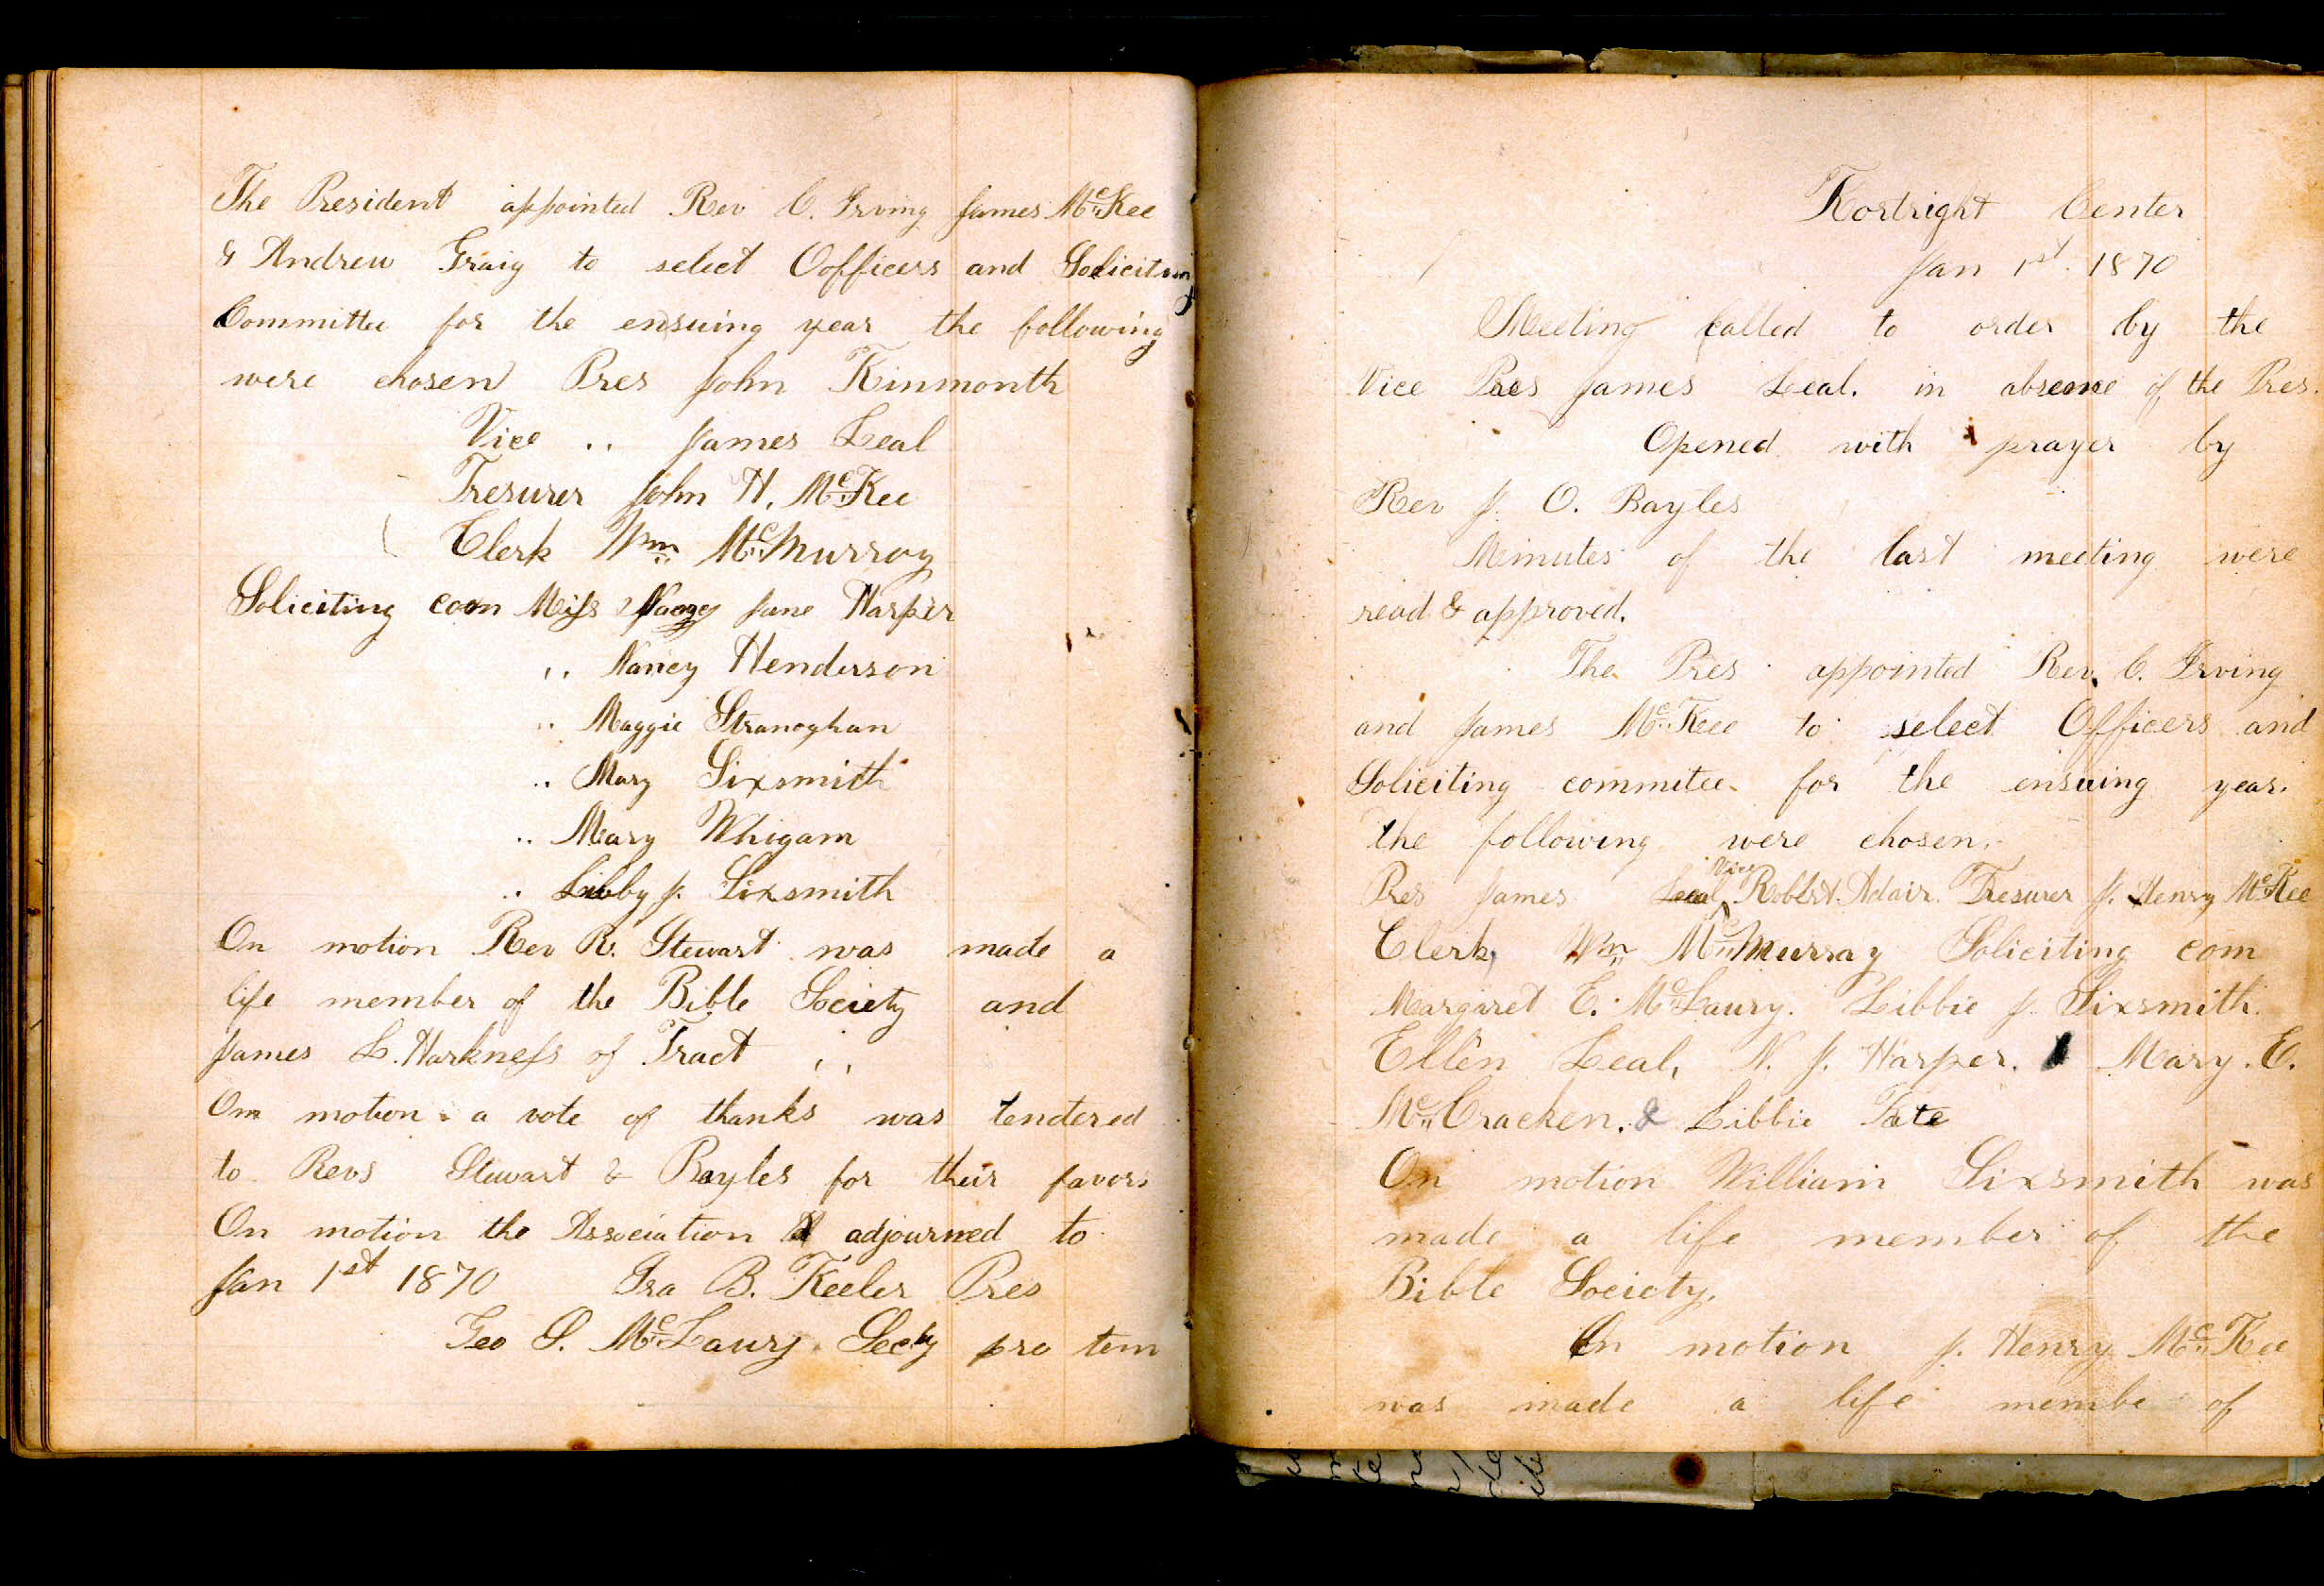 The President appointed Rev C. Irving James McKee
& Andrew Graig to select Oofficers and Soliciting
Committee for the ensuing year the following
were chosen Pres John Kinmonth
Vice .. James Leal
Tresurer John H. McKee
Clerk Wm McMurray
Soliciting com Miss Nancy Jane Harper
,, Nancy Henderson
.. Maggie Stranoghan
.. Mary Sixsmith
.. Mary Whigam
.. Libby J. Sixsmith
On motion Rev R. Stewart was made a
life member of the Bible Society and
James L. Harkness of Tract ,,
On motion a vote of thanks was tendered
to Revs Stewart & Bayles for their favors
On motion the Association adjourned to
Jan 1st 1870 Ira B. Keeler Pres
Geo S. McLaury Secty pro tem
Kortright Center
Jan 1st 1870
Meeting called to order by the
Vice Pres James Leal. in absence of the Pres.
Opened with prayer by
Rev J. O. Bayles
Minutes of the last meeting were
read & approved.
The Pres appointed Rev. C. Irving
and James McKee to select Officers and
Soliciting commitee for the ensuing year.
the following were chosen.
Pres James Leal, Vice Robert Adair. Tresurer J. Henry McKee
Clerk, Wm McMurray Soliciting com
Margaret E. McLaury. Libbie J. Sixsmith.
Ellen Leal, N. J. Harper. Mary. E.
McCracken. & Libbie Tate
On motion William Sixsmith was
made a life member of the
Bible Society.
On motion J. Henry McKee
was made a life membe of